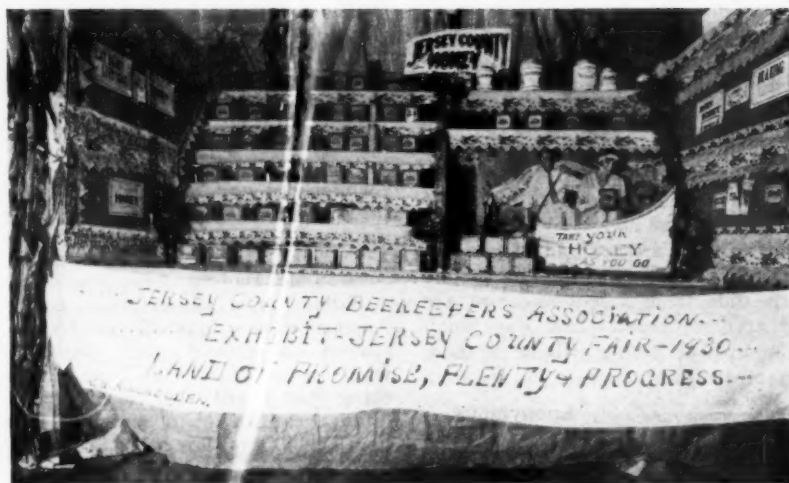 JERSEY COUNTY
HONEY
HONEY
TAKE YOUR
HONEY
AS YOU GO
JERSEY COUNTY BEEKEEPERS ASSOCIATION
EXHIBIT - JERSEY COUNTY FAIR - 1930
LAND OF PROMISE, PLENTY & PROGRESS